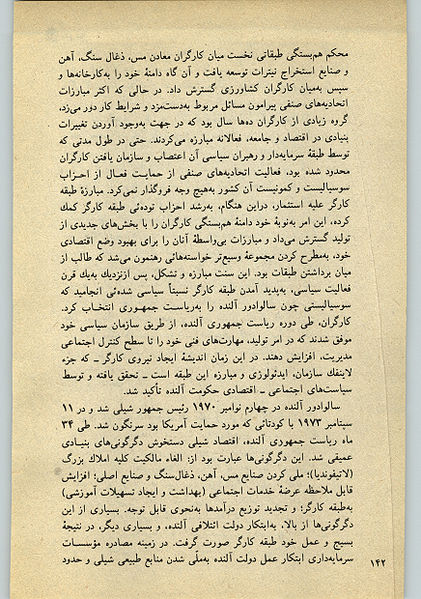 محکم هم‌بستگی طبقاتی نخست میان کارگران معادن مس، ذغال سنگ، آهن
و صنایع استخراج نیترات توسعه یافت و آن گاه دامنهٔ خود را به‌کارخانه‌ها و
سپس به‌میان کارگران کشاورزی گسترش داد. در حالی که اکثر مبارزات
اتحادیه‌های صنفی پیرامون مسائل مربوط به‌دست‌مزد و شرایط کار دور می‌زد،
گروه زیادی از کارگران ده‌ها سال بود که در جهت به‌وجود آوردن تغییرات
بنیادی در اقتصاد و جامعه، فعالانه مبارزه می‌کردند. حتی در طول مدتی که
توسط طبقهٔ سرمایه‌دار و رهبران سیاسی آن اعتصاب و سازمان یافتن کارگران
محدود شده بود، فعالیت اتحادیه‌های صنفی از حمایت فعـال از احـزاب
سوسیالیست و کمونیست آن کشور به‌هیچ وجه فروگذار نمی‌کرد. مبارزهٔ طبقه
کارگر علیه استثمار، دراین هنگام، به‌رشد احزاب توده‌ئی طبقه کارگر کمک
کرده، این امر به‌نوبهٔ خود دامنهٔ هم‌بستگی کارگران را با بخش‌های جدیدی از
تولید گسترش می‌داد و مبارزات بی‌واسطهٔ آنان را برای بهبود وضع اقتصادی
خود، به‌مطرح کردن مجموعهٔ وسیع‌تر خواسته‌هائی رهنمون می‌شد که طالب از
میان برداشتن طبقات بود. این سنت مبارزه و تشکل، پس ازنزدیك به‌یك قرن
فعالیت سیاسی، به‌پدید آمدن طبقه کارگر نسبتاً سیاسی شده‌ئی انجامید که
سوسیالیستی چون سالوادور آلنده را به‌ریاسـت جمهـوری انتخـاب کرد.
کارگران، طی دوره ریاست جمهوری آلنده، از طریق سازمان سیاسی خود
موفق شدند که در امر تولید، مهارت‌های فنی خود را تا سطح کنترل اجتماعی
مدیریت، افزایش دهند. در این زمان اندیشهٔ ایجاد نیروی کارگر ـ که جزء
لاینفك سازمان، ایدئولوژی و مبارزه این طبقه است ـ تحقق یافته و توسط
سیاست‌های اجتماعی ـ اقتصادی حکومت آلنده تأکید شد.
سالوادور آلنده در چهارم نوامبر ۱۹۷۰ رئیس جمهور شیلی شد و در ۱۱
سپتامبر ۱۹۷۳ با کودتائی که مورد حمایت آمریکا بود سرنگون شد. طی ۳۴
ماه ریاست جمهوری آلنده، اقتصاد شیلی دستخوش دگرگونی‌های بنیـادی
عمیقی شد. این دگرگونی‌ها عبارت بود از: الغاء مالکیت کلیه املاك بزرگ
(لاتیفوندیا)؛ ملی کردن صنایع مس، آهن، ذغال‌سنگ و صنایع اصلی؛ افزایش
قابل ملاحظه عرضهٔ خدمات اجتماعی (بهداشت و ایجاد تسهیلات آموزشی)
به‌طبقه کارگر؛ و تجدید توزیع درآمدها به‌نحوی قابل توجه. بسیاری از این
دگرگونی‌ها از بالا، به‌ابتکار دولت ائتلافی آلنده، و بسیاری دیگر، در نتیجهٔ
بسیج و عمل خود طبقه کارگر صورت گرفت. در زمینه مصادره مؤسسـات
سرمایه‌داری ابتکار عمل دولت آلنده به‌ملّی شدن منابع طبیعی شیلی و حدود
۱۴۲